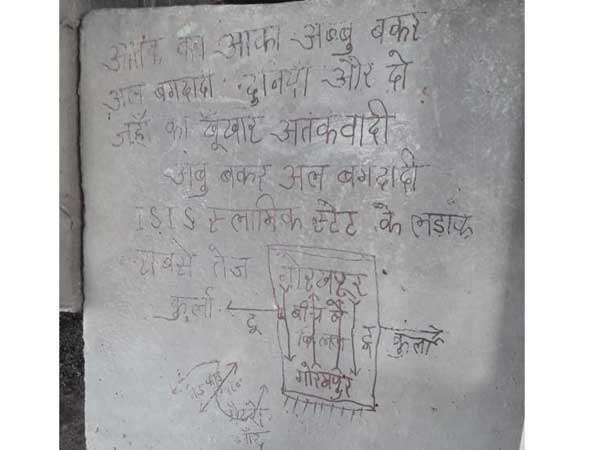 आतंक का आका अब्बु बकर
अल बगदादी दुनिया और दो
जहाँ का खूंखार अतंकवादी
अबु बकर अल बगदादी
ISIS स्लामिक स्टेट के लड़ाके
सबसे तेज
गोरखपुर
कुर्ला टू
बीच में
टू कुर्ला
गोरखपुर